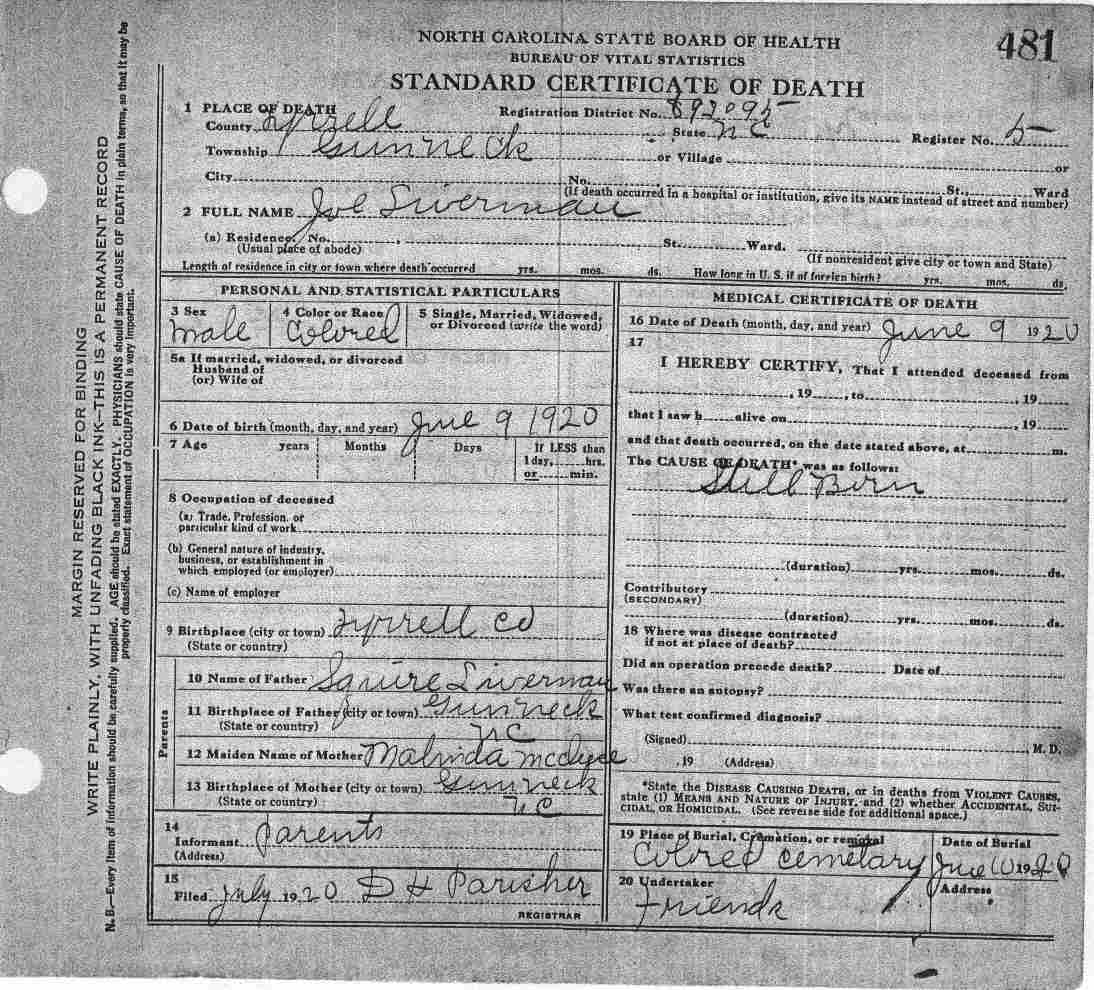 NORTH CAROLINA STATE BOARD OF HEALTH
BUREAU OF VITAL STATISTICS
STANDARD CERTIFICATE OF DEATH
481
1 PLACE OF DEATH
Registration District No. 892095
County Tyrrell State NC Register No. 5
Township Gunneck or Village or
City No. St., Ward
(If death occurred in a hospital or institution, give its NAME instead of street and number)
2 FULL NAME Joe Liverman
(a) Residence. No. , St. Ward.
(Usual place of abode) (If nonresident give city or town and State)
Length of residence in city or town where death occurred yrs. mos. ds. How long in U. S. if of foreign birth? yrs. mos. ds.
PERSONAL AND STATISTICAL PARTICULARS
3 Sex 4 Color or Race 5 Single, Married, Widowed, or Divorced (write the word)
male Colored
5a If married, widowed, or divorced
Husband of
(or) Wife of
6 Date of birth (month, day, and year) June 9 1920
7 Age years Months Days If LESS than
1 day, hrs.
or min.
8 Occupation of deceased
(a) Trade, Profession, or
particular kind of work
(b) General nature of industry,
business, or establishment in
which employed (or employer)
(c) Name of employer
9 Birthplace (city or town) Tyrrell co
(State or country)
Parents
10 Name of Father Squire Liverman
11 Birthplace of Father (city or town) Gunneck
(State or country) NC
12 Maiden Name of Mother Malinda
13 Birthplace of Mother (city or town) Gunneck
(State or country) NC
14
Informant parents
(Address)
15
Filed July 1920 D H Parisher
REGISTRAR
MEDICAL CERTIFICATE OF DEATH
16 Date of Death (month, day, and year) June 9 1920
17
I HEREBY CERTIFY, That I attended deceased from
, 19 , to , 19
that I saw h alive on , 19
and that death occurred, on the date stated above, at m.
The CAUSE OF DEATH* was as follows:
Still Born
(duration) yrs. mos. ds.
Contributory
(SECONDARY)
(duration) yrs. mos. ds.
18 Where was disease contracted
if not at place of death?
Did an operation precede death? Date of
Was there an autopsy?
What test confirmed diagnosis?
(Signed) , M. D.
, 19 (Address)
*State the DISEASE CAUSING DEATH, or in deaths from VIOLENT CAUSES,
state (1) MEANS AND NATURE OF INJURY, and (2) whether ACCIDENTAL, SUI-
CIDAL, OR HOMICIDAL. (See reverse side for additional space.)
19 Place of Burial, Cremation, or removal Date of Burial
Colored cemetary June 10 1920
20 Undertaker Address
Friends
MARGIN RESERVED FOR BINDING
WRITE PLAINLY, WITH UNFADING BLACK INK—THIS IS A PERMANENT RECORD
N. B.—Every item of information should be carefully supplied. AGE should be stated EXACTLY. PHYSICIANS should state CAUSE OF DEATH in plain terms, so that it may be
properly classified. Exact statement of OCCUPATION is very important.